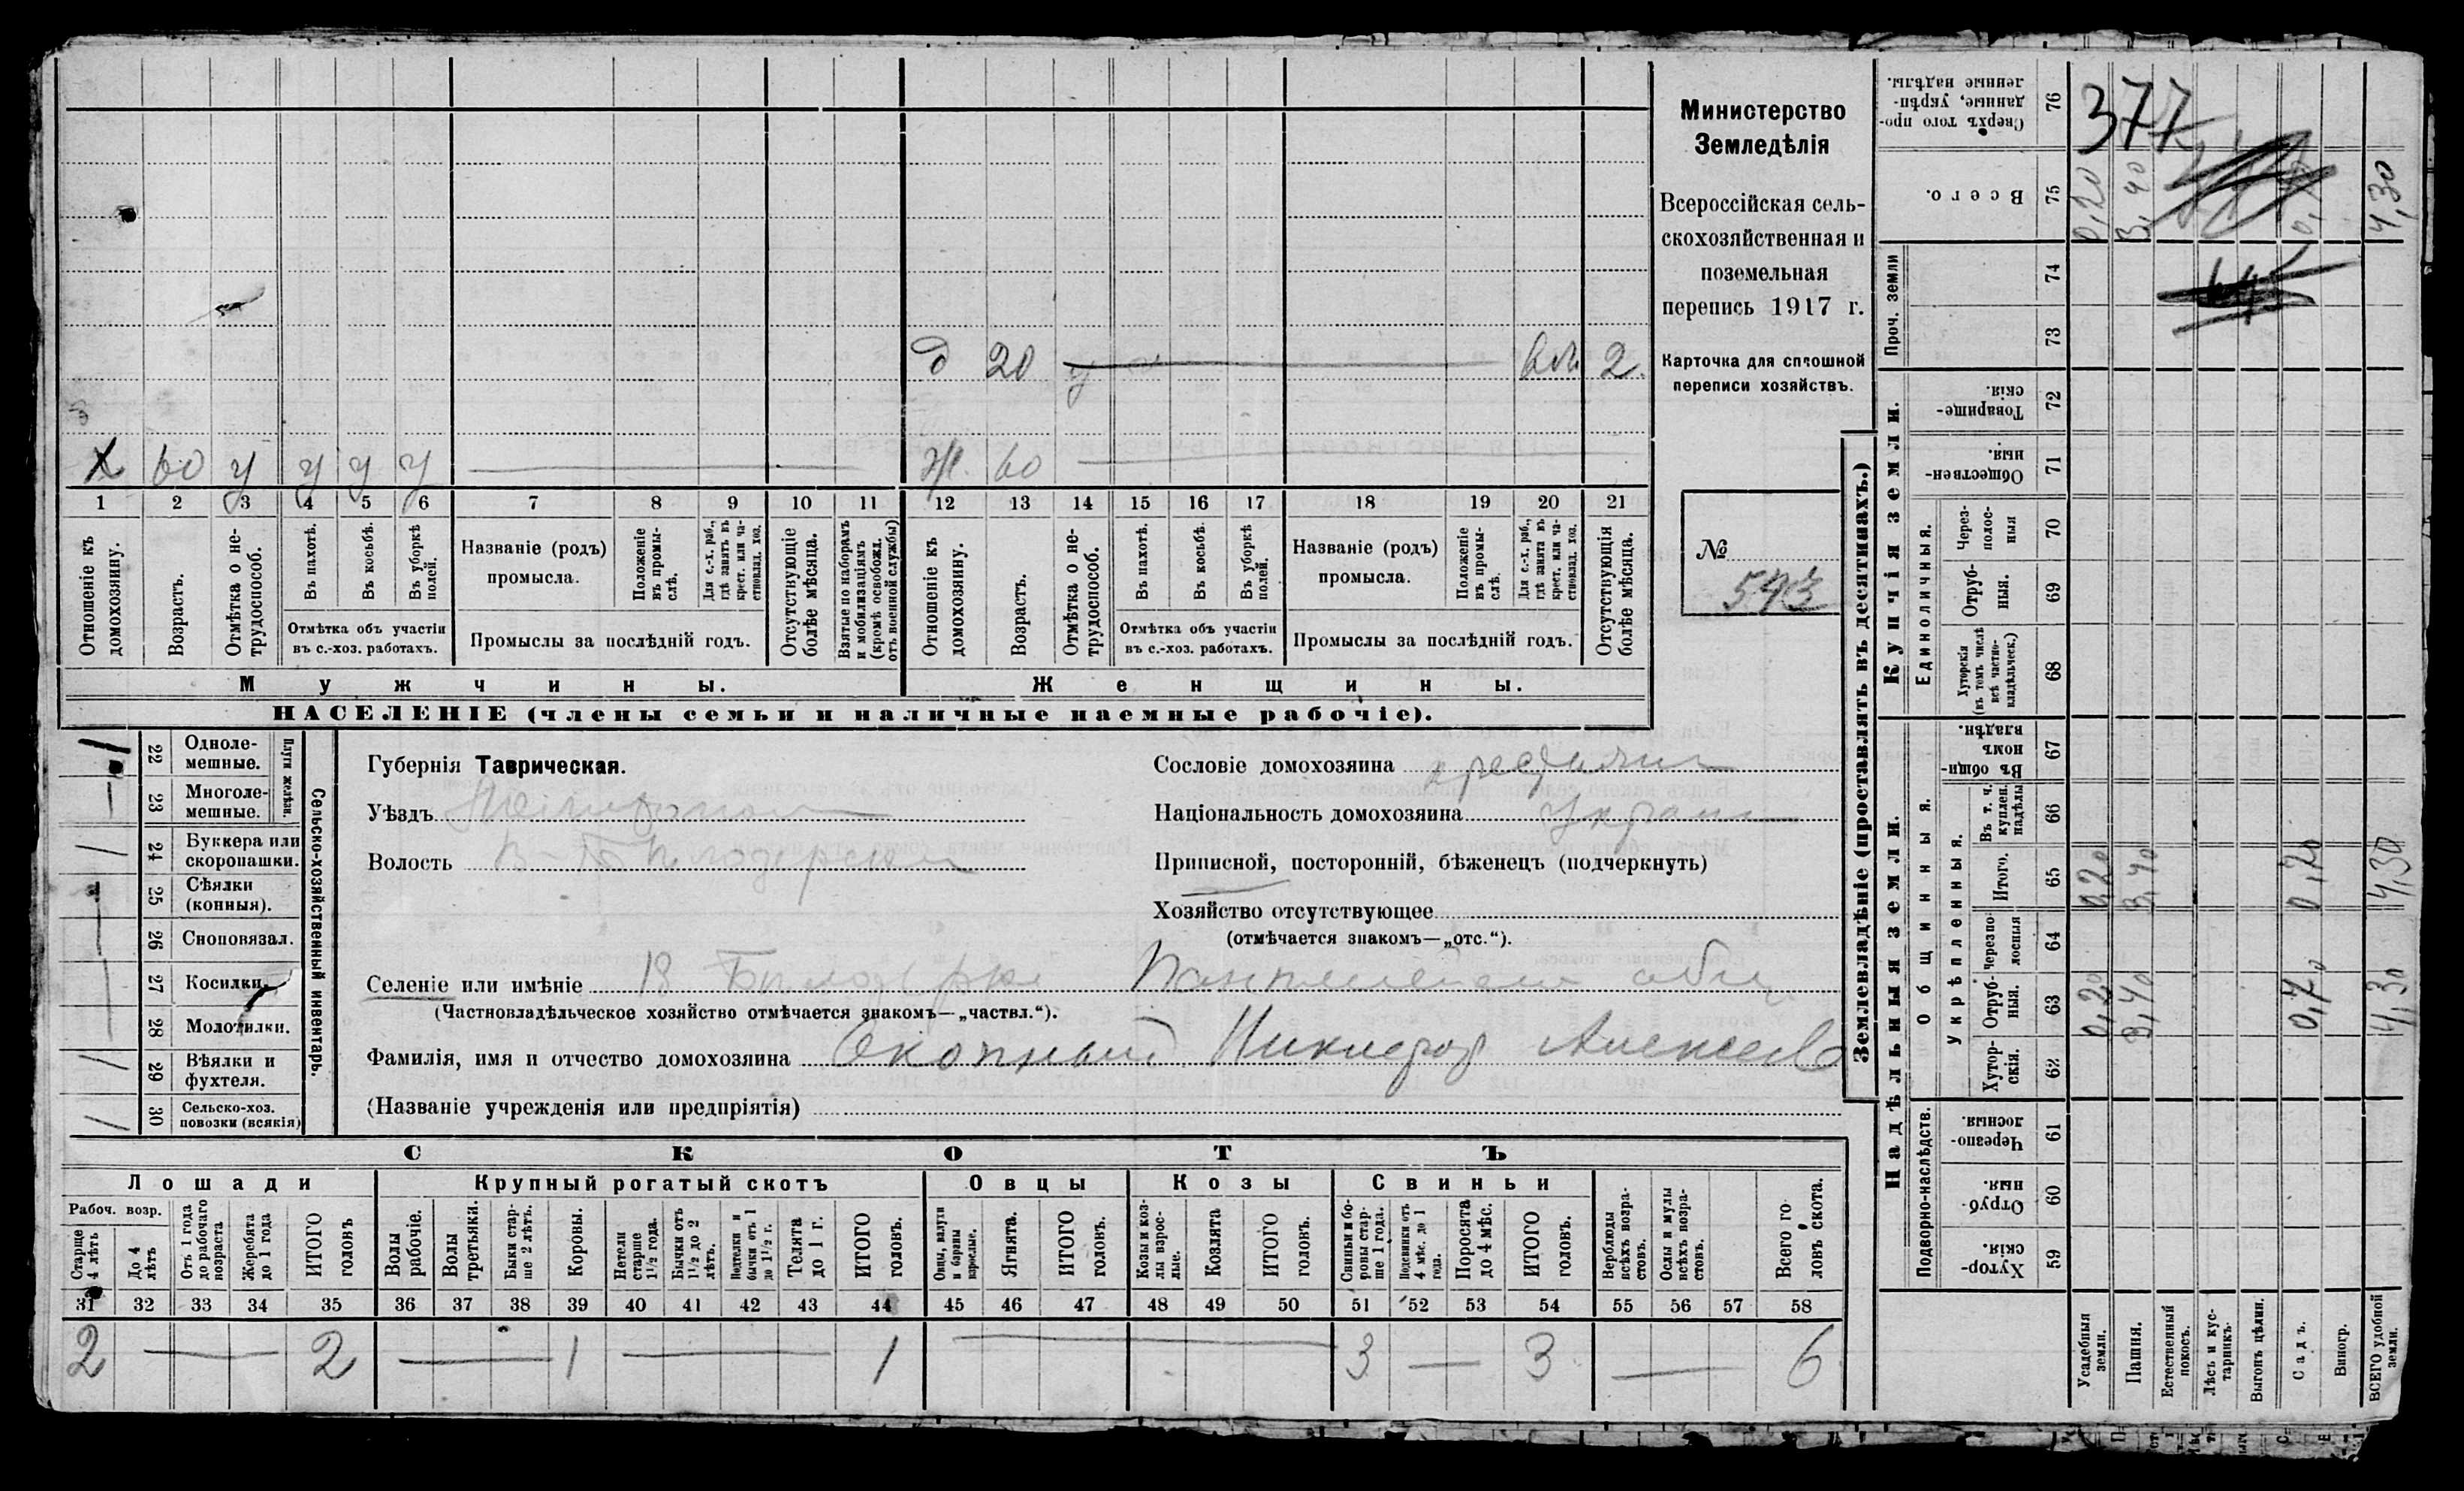 Министерство
Земледѣлія
Всероссійская сель-
скохозяйственная и
поземельная
перепись 1917 г.
Карточка для сплошной
переписи хозяйствъ.
№
573
д 20 у 2
х 60 у у у у ж 60
1 2 3 4 5 6 7 8 9 10 11 12 13 14 15 16 17 18 19 20 21
Отношеніе къ домохозяину.
Возрастъ.
Отмѣтка о не-трудоспособ.
Въ пахотѣ.
Въ косьбѣ.
Въ уборкѣ полей.
Отмѣтка объ участіи въ с.-хоз. работахъ.
Названіе (родъ) промысла.
Положеніе въ промы-слѣ.
Для с.-х. раб., гдѣ занятъ въ крест. или ча-стновлад. хоз.
Промыслы за послѣдній годъ.
Отсутствующіе болѣе мѣсяца.
Взятые по наборамъ и мобилизаціямъ (кромѣ освобожд. отъ военной службы)
Отношеніе къ домохозяину.
Возрастъ.
Отмѣтка о не-трудоспособ.
Въ пахотѣ.
Въ косьбѣ.
Въ уборкѣ полей.
Отмѣтка объ участіи въ с.-хоз. работахъ.
Названіе (родъ) промысла.
Положеніе въ промы-слѣ.
Для с.-х. раб., гдѣ занята въ крест. или ча-стновлад. хоз.
Промыслы за послѣдній годъ.
Отсутствующія болѣе мѣсяца.
Мужчины. Женщины.
НАСЕЛЕНІЕ (члены семьи и наличные наемные рабочіе).
Сельско-хозяйственный инвентарь.
Плуги желѣзн.
22 Одноле-мешные. 1
23 Многоле-мешные.
24 Буккера или скоропашки. 1
25 Сѣялки (конныя).
26 Сноповязал.
27 Косилки.
28 Молотилки.
29 Вѣялки и фухтеля. 1
30 Сельско-хоз. повозки (всякія) 1
Губернія Таврическая.
Уѣздъ
Волость
Сословіе домохозяина
Національность домохозяина
Приписной, посторонній, бѣженецъ (подчеркнуть)
Хозяйство отсутствующее
(отмѣчается знакомъ—„отс.“).
Селеніе или имѣніе
(Частновладѣльческое хозяйство отмѣчается знакомъ—„частвл.“).
Фамилія, имя и отчество домохозяина Скопный Никифор Алексеев
(Названіе учрежденія или предпріятія)
СКОТЪ
Лошади Крупный рогатый скотъ Овцы Козы Свиньи
Рабоч. возр.
Старше 4 лѣтъ
До 4 лѣтъ
Отъ 1 года до рабочаго возраста
Жеребята до 1 года
ИТОГО головъ
Волы рабочіе.
Волы третьяки.
Быки стар-ше 2 лѣтъ.
Коровы.
Нетели старше 1½ года.
Бычки отъ 1½ до 2 лѣтъ.
Подтелки и бычки отъ 1 до 1½ г.
Телята до 1 г.
ИТОГО головъ.
Овцы, валухи и бараны взрослые.
Ягнята.
ИТОГО головъ.
Козы и коз-лы взрос-лые.
Козлята
ИТОГО головъ.
Свиньи и бо-ровы стар-ше 1 года.
Подсвинки отъ 4 мѣс. до 1 года.
Поросята до 4 мѣс.
ИТОГО головъ.
Верблюды всѣхъ возра-стовъ.
Ослы и мулы всѣхъ возра-стовъ.
Всего го-ловъ скота.
31 32 33 34 35 36 37 38 39 40 41 42 43 44 45 46 47 48 49 50 51 52 53 54 55 56 57 58
2 — 2 — 1 — 1 — 3 — 3 — 6
Землевладѣніе (проставлять въ десятинахъ.)
Купчія земли.
Надѣльныя земли.
Сверхъ того про-данные, укрѣп-ленные надѣлы. 76 377
Всего. 75 0,20 3,40 4,30
Проч. земли 74
73
Товарище-скія. 72
Обществен-ныя. 71
Единоличныя.
Через-полос-ныя 70
Отруб-ныя. 69
Хуторскія (въ томъ числѣ всѣ частно-владѣльческ.) 68
Общинныя.
Въ общин-номъ владѣн. 67
Укрѣпленныя.
Въ т. ч. куплен. надѣлы 66
Итого. 65 0,20 3,40 0,70 4,30
Черезпо-лосныя 64
Отруб-ныя. 63 0,20 3,40 0,70 4,30
Хутор-скія. 62
Подворно-наслѣдств.
Черезпо-лосныя 61
Отруб-ныя. 60
Хутор-скія. 59
Усадебныя земли.
Пашня.
Естественный покосъ.
Лѣсъ и кус-тарникъ.
Выгонъ цѣлин.
Садъ.
Виногр.
ВСЕГО удобной земли.